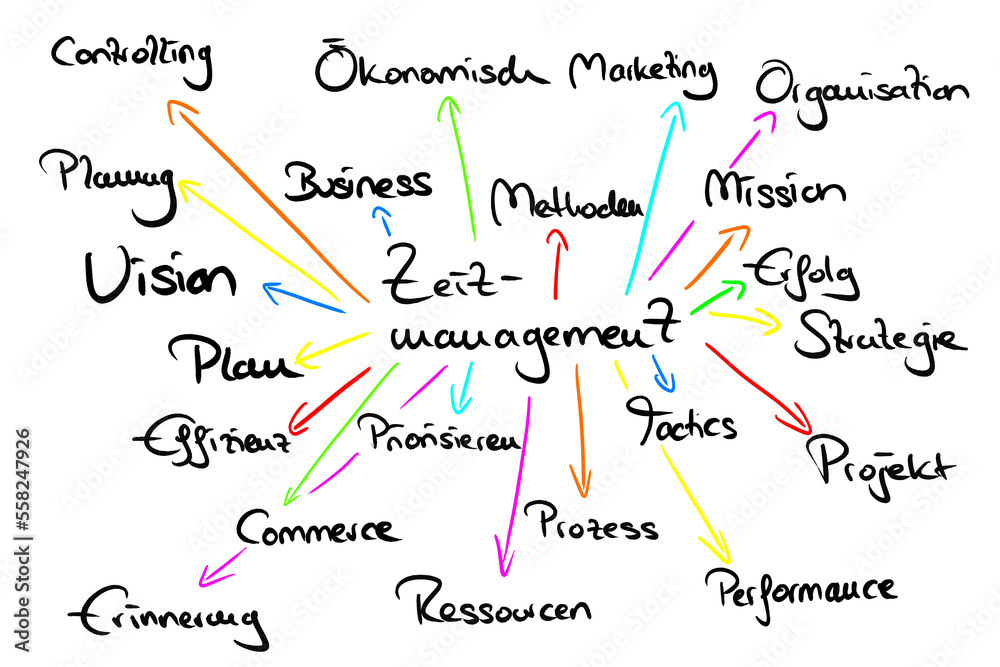 Controlling
Ökonomisch
Marketing
Organisation
Planung
Business
Methoden
Mission
Vision
Zeit-
management
Erfolg
Strategie
Plan
Effizienz
Priorisieren
Tactics
Projekt
Commerce
Prozess
Erinnerung
Ressourcen
Performance
Adobe Stock | #558247926